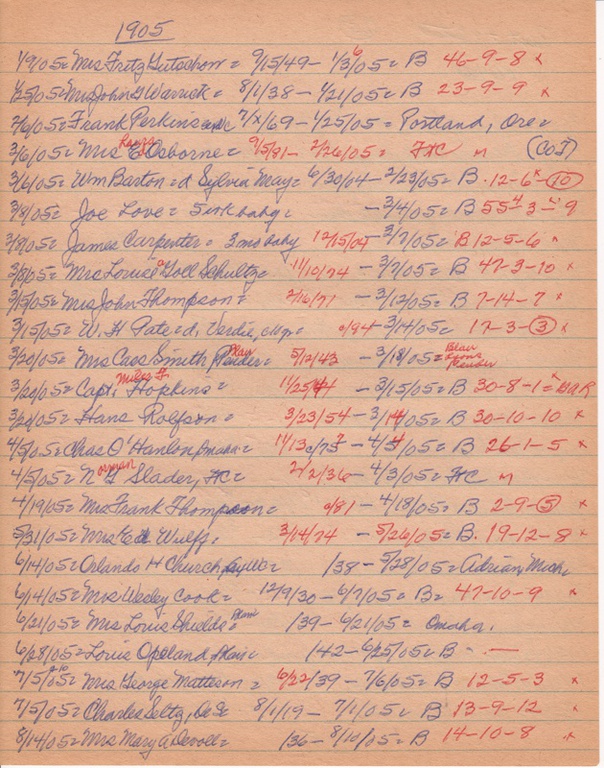 1905
1/9/05= Mrs Fritz Gutschow= 9/15/49 - 1/3/05= B 46-9-8 x
1/25/05= Mrs John G Warrick= 8/1/38 - 1/21/05= B 23-9-9 x
2/6/05= Frank Perkins 7/x/69 - 1/25/05= Portland, Ore=
3/6/05= Mrs E Osborne= 9/5/81 - 2/26/05= FHC m (COJ)
3/6/05= Wm Barton= d Sylvia May= 6/30/04 - 2/23/05= B. 12-6- x 10
3/8/05= Joe Love= 5 wk baby= - 3/4/05= B 55 3 - 9
3/8/05= James Carpenter= 3 mo baby 12/15/04 - 3/7/05= B 12-5-6 x
3/8/05= Mrs Louise Goll Schultz= 11/10/74 - 3/7/05= B 47-3-10 x
3/15/05= Mrs John Thompson= 2/16/71 - 3/12/05= B 7-14-7 x
3/15/05= W. H Pate= d, Verdie, 0/94 - 3/14/05= 17-3-3 x
3/20/05= Mrs Cass Smith, Pender= Blair 5/12/43 - 3/18/05= Blair Pender
3/20/05= Capt. Miles H. Hopkins= 11/25/44 - 3/15/05= B 30-8-1= x
3/22/05= Hans Rolfson= 3/23/54 - 3/14/05= B 30-10-10 x
4/5/05= Chas O'Hanlon, Omaha= 11/13 - 4/5/05= B 26-1-5 x
4/5/05= Norman G Slader, FC= 2/2/36 - 4/3/05= FHC m
4/19/05= Mrs Frank Thompson= 0/81 - 4/18/05= B 2-9-5 x
5/31/05= Mrs Ed Wulff= 3/14/74 - 5/26/05= B. 19-12-8 x
6/14/05= Orlando H Church, /38 - 5/28/05= Adrian, Mich=
6/14/05= Mrs Wesley Cook= 12/9/30 - 6/7/05= B= 47-10-9 x
6/21/05= Mrs Louis Shields= /39 - 6/21/05= Omaha.
6/28/05= Louis Opeland, Blair= /42 - 6/25/05= B - —
7/5/05= Mrs George Matteson= 6/22/39 - 7/6/05= B 12-5-3 x
7/5/05= Charles Seltz, 8/1/19 - 7/1/05= B 13-9-12 x
8/14/05= Mrs Mary A Devoll= /36 - 8/10/05= B 14-10-8 x